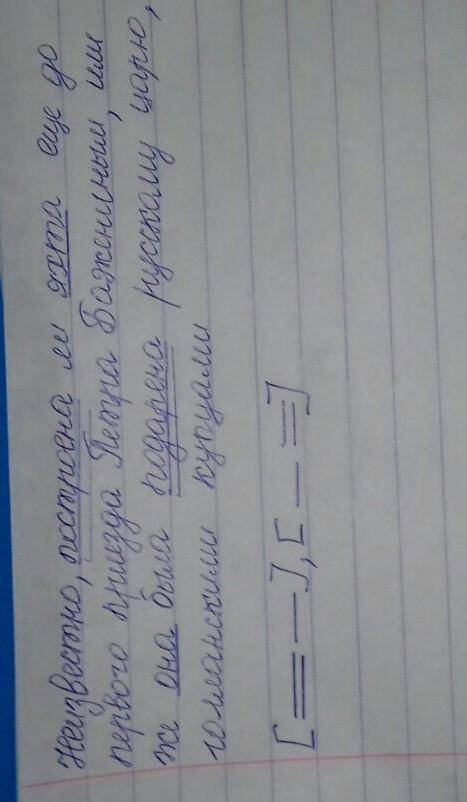 Неизвестно, построена ли яхта еще до
первого приезда Петра Баженинным, или
же она была подарена русскому царю,
голланскими купцами
[= –], [ – =]